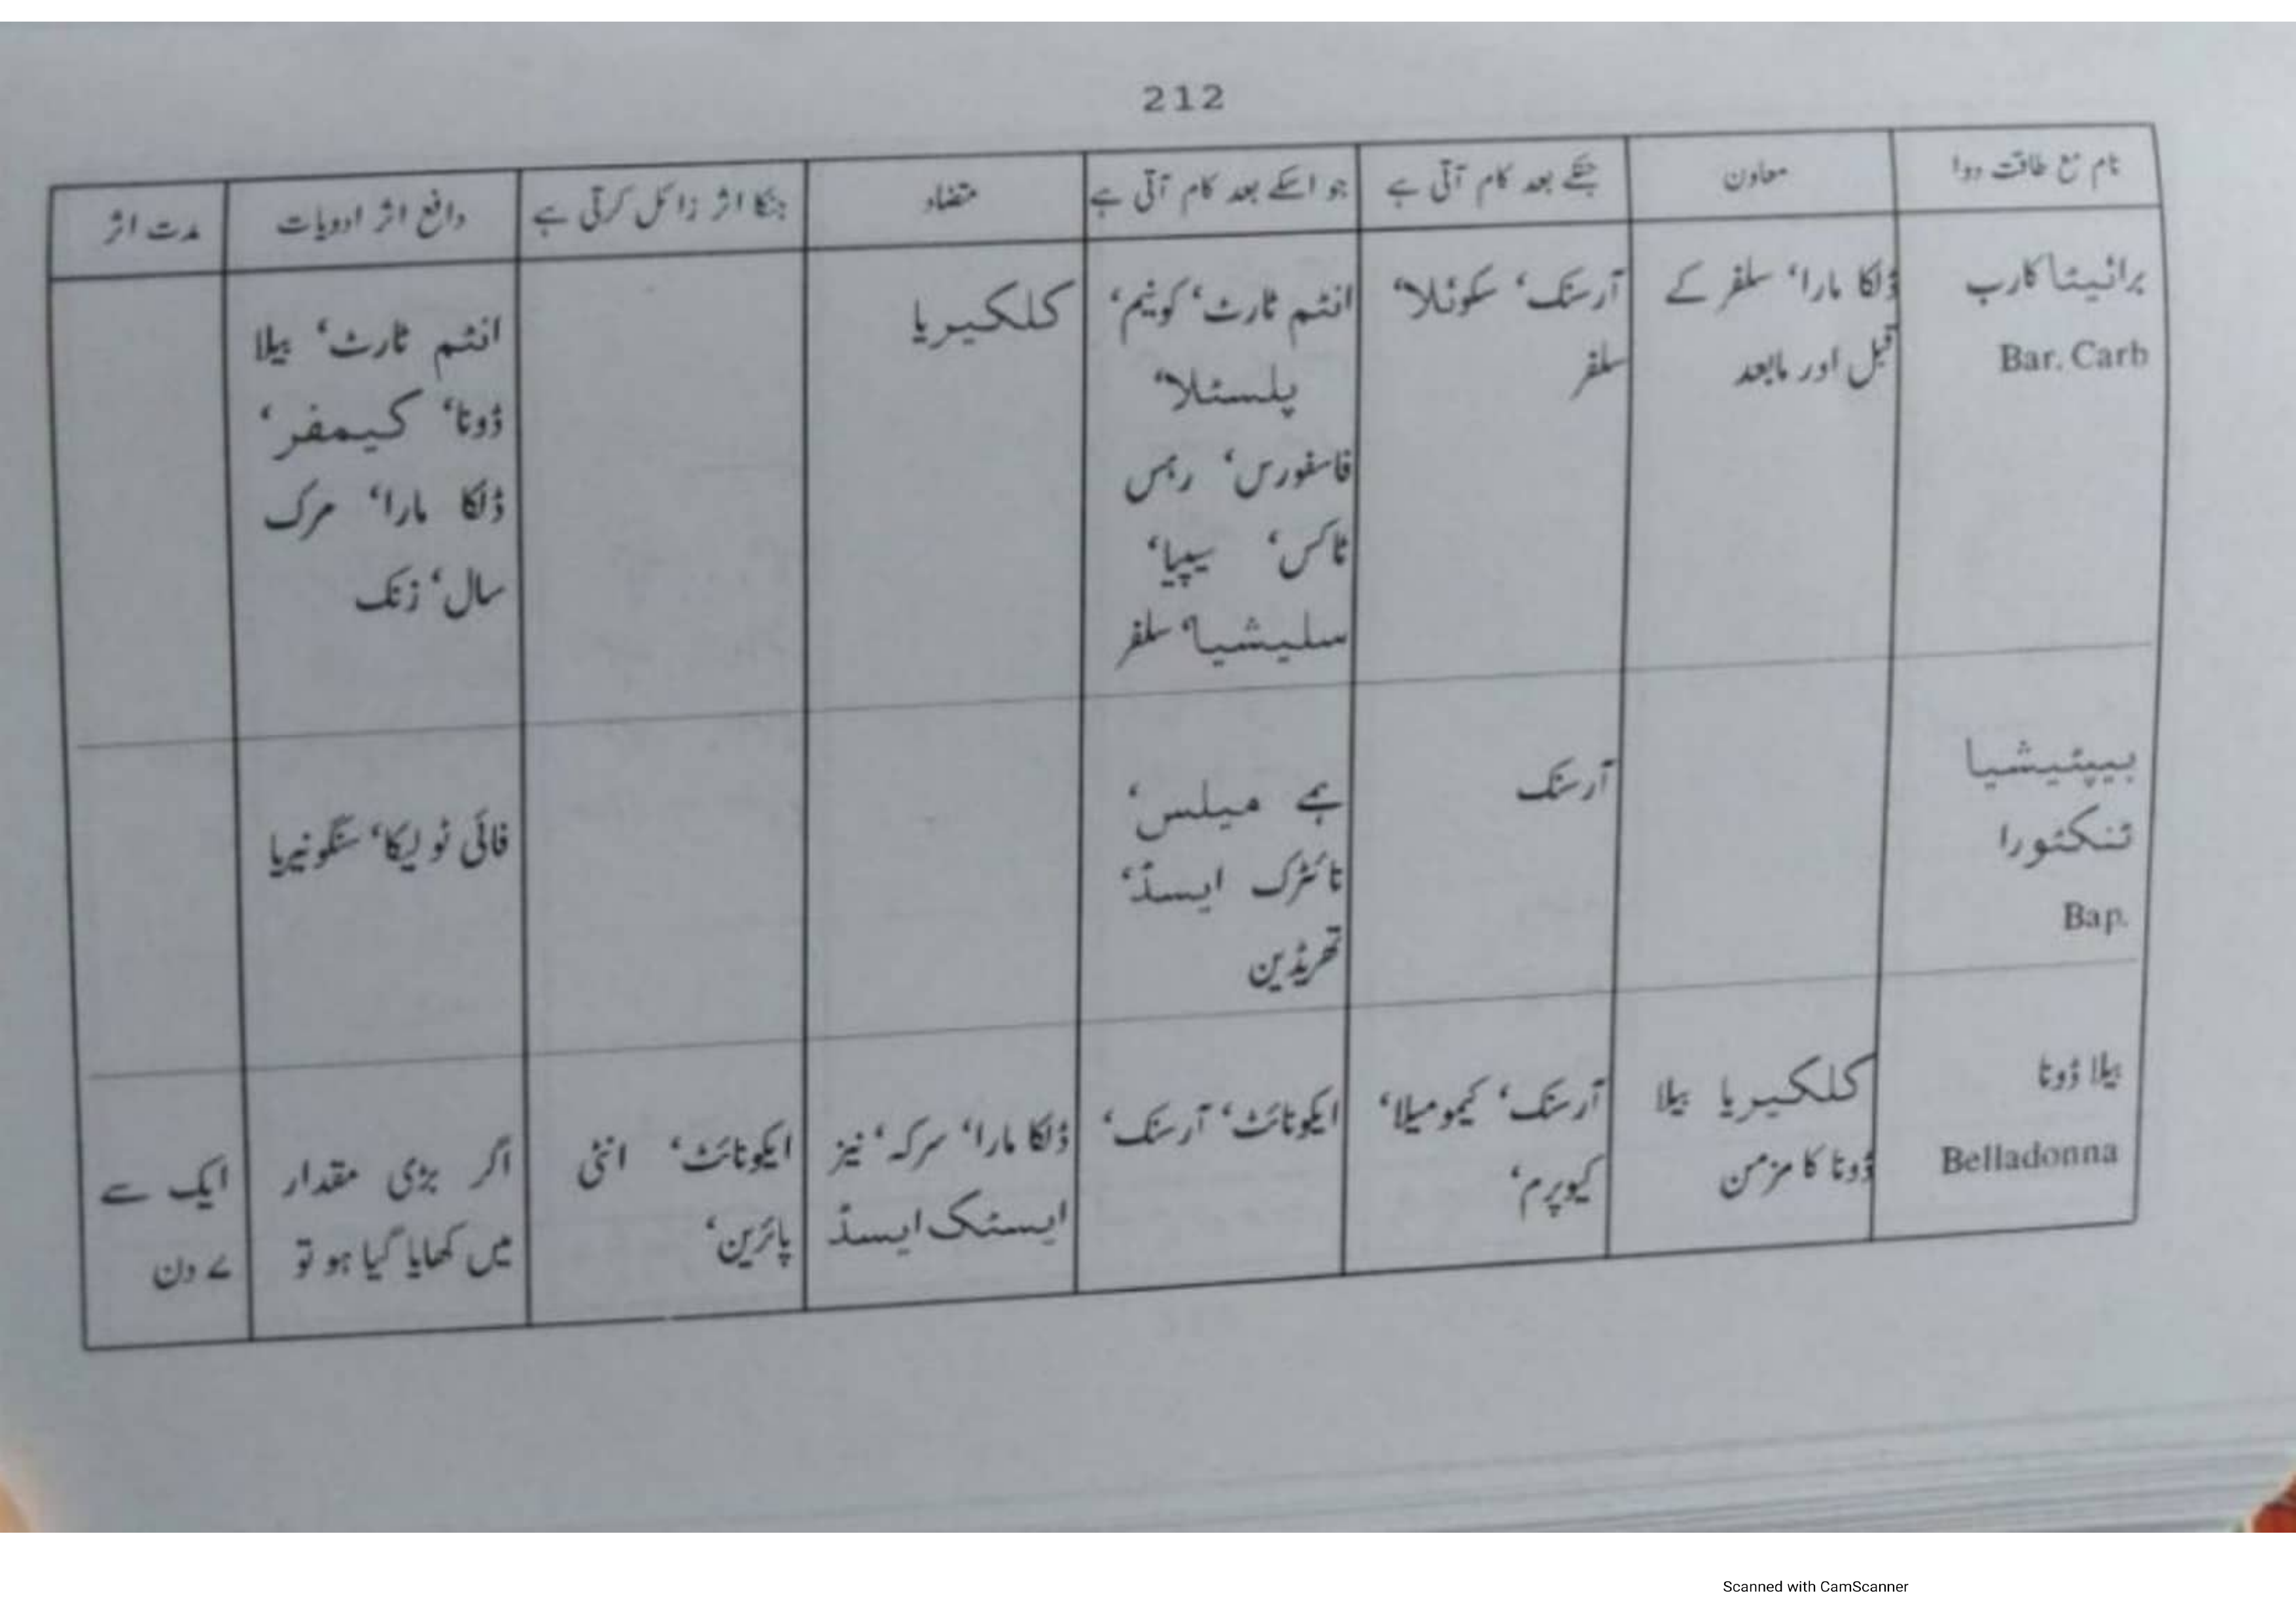 212
نام مع طاقت دوا
معاون
جسکے بعد کام آتی ہے
جو اسکے بعد کام آتی ہے
متضاد
جنکا اثر زائل کرتی ہے
دافع اثر ادویات
مدت اثر
برائیتا کارب
Bar. Carb
ڈلکا مارا‘ سلفر کے
قبل اور مابعد
آرسنک‘ سکوئلا‘
سلفر
انٹم ٹارٹ‘ کونیم‘
پلسٹلا‘
فاسفورس‘ رہس
ٹاکس‘ سیپیا‘
سلیشیا‘ سلفر
کلکیریا
انٹم ٹارٹ‘ بیلا
ڈونا‘ کیمفر‘
ڈلکا مارا‘ مرک
سال‘ زنک
بیپٹیشیا
ٹنکٹورا
Bap.
آرسنک
ہے میلس‘
نائٹرک ایسڈ‘
تھریڈین
فائی ٹولیکا‘ سنگونیریا
بیلا ڈونا
Belladonna
کلکیریا بیلا
ڈونا کا مزمن
آرسنک‘ کیمومیلا‘
کیوپرم‘
ایکونائٹ‘ آرسنک‘
ڈلکا مارا‘ سرکہ‘ نیز
ایسٹک ایسڈ
ایکونائٹ‘ انٹی
پائرین‘
اگر بڑی مقدار
میں کھایا گیا ہو تو
ایک سے
۷ دن
Scanned with CamScanner